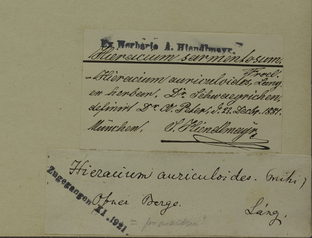 Ex Herbario A. Hiendlmayr.
Hieracium sarmentosum.
Froel.
Hieracium auriculoides, Láng
ex herbar. Dr. Schwaegrichen,
definivit Dr. A. Peter, d. 21. Decbr. 1881.
München. Hiendlmayr
Hieracium auriculoides. (mihi)
Ofner Berge. Láng.
Zugegangen XI. 1921.